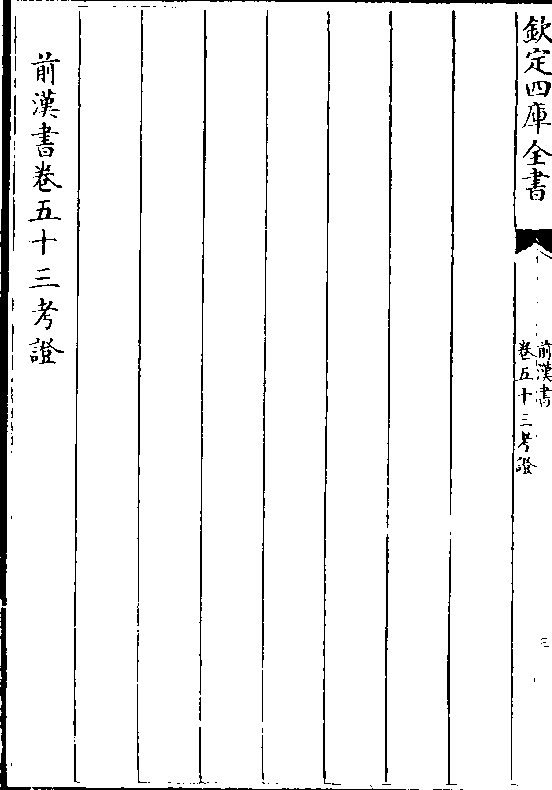 欽定四庫全書
前漢書
卷五十三考證
三
前漢書卷五十三考證